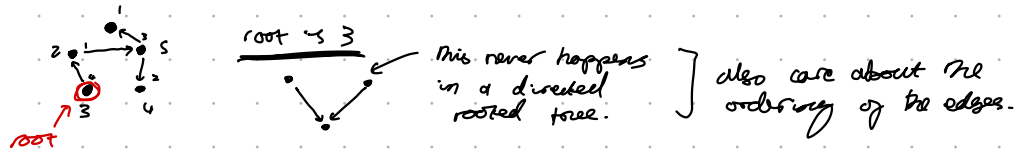 1
2 1 3 5
0 2
3 4
root
root is 3
This never happens
in a directed
rooted tree.
also care about the
ordering of the edges.